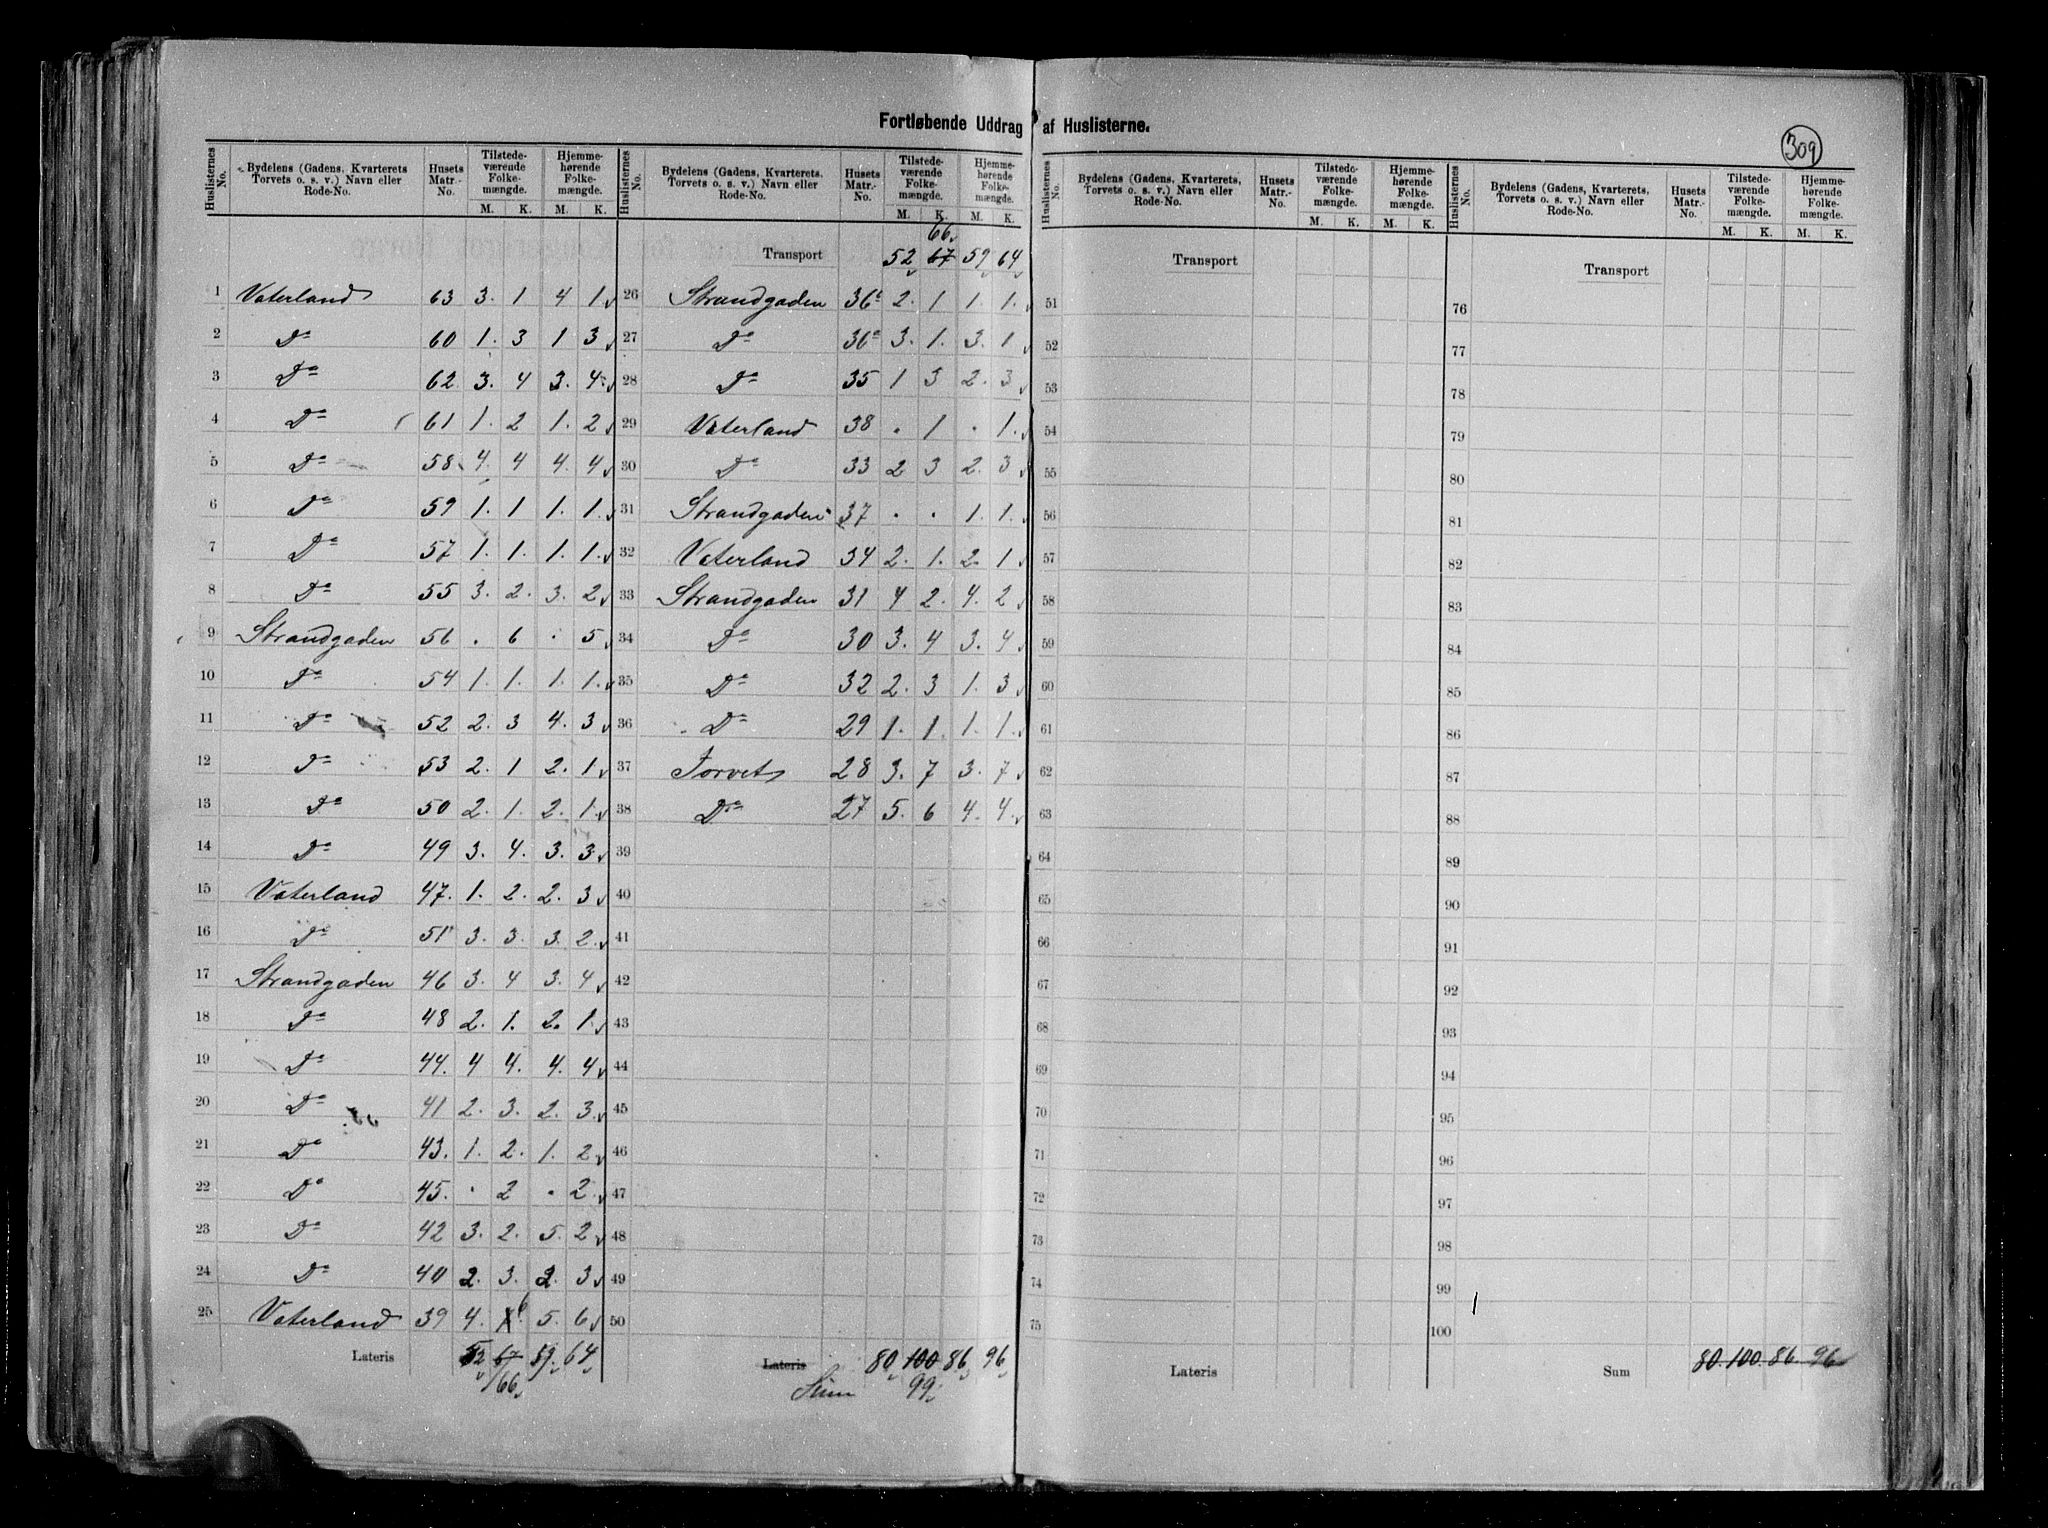 Fortløbende Uddrag af Huslisterne.
309
Huslisternes No. | Bydelens (Gadens, Kvarterets Torvets o. s. v.) Navn eller Rode-No. | Husets Matr.-No. | Tilstedeværende Folkemængde. M. K. | Hjemmehørende Folkemængde. M. K.
1 Vaterland 63 3. 1 4 1.
2 Do 60 1. 3 1 3
3 Do 62 3. 4 3. 4.
4 Do 61 1. 2 1. 2
5 Do 58 4. 4 4. 4
6 Do 59 1. 1 1. 1.
7 Do 57 1. 1. 1. 1.
8 Do 55 3. 2. 3. 2
9 Strandgaden 56 . 6 . 5
10 Do 54 1. 1. 1. 1.
11 Do 52 2. 3 4. 3
12 Do 53 2. 1 2. 1
13 Do 50 2. 1. 2. 1.
14 Do 49 3. 4. 3. 3
15 Vaterland 47. 1. 2. 2. 3
16 Do 51 3. 3. 3. 2
17 Strandgaden 46 3. 4 3. 4
18 Do 48 2. 1. 2. 1.
19 Do 44. 4 4. 4. 4
20 Do 41 2. 3. 2. 3.
21 Do 43. 1. 2. 1. 2
22 Do 45. . 2 . 2.
23 Do 42 3. 2. 5. 2
24 Do 40 2. 3. 2. 3
25 Vaterland 39 4. 6 5. 6
Lateris 52 67 59. 64
66
Huslisternes No. | Bydelens (Gadens, Kvarterets, Torvets o. s. v.) Navn eller Rode-No. | Husets Matr.-No. | Tilstedeværende Folkemængde. M. K. | Hjemmehørende Folkemængde. M. K.
66
Transport 52 67 59 64
26 Strandgaden 36b 2. 1 1. 1.
27 Do 36a 3. 1. 3. 1
28 Do 35 1 3 2. 3
29 Vaterland 38 . 1 . 1.
30 Do 33 2 3 2. 3
31 Strandgaden 37 . . 1. 1.
32 Vaterland 34 2. 1. 2. 1
33 Strandgaden 31 4 2. 4. 2
34 Do 30 3. 4 3. 4
35 Do 32 2. 3 1. 3
36 Do 29 1. 1. 1. 1.
37 Torvet 28 3. 7 3. 7
38 Do 27 5. 6 4. 4.
39
40
41
42
43
44
45
46
47
48
49
50
Lateris 80 100 86 96
Sum 99
Huslisternes No. | Bydelens (Gadens, Kvarterets, Torvets o. s. v.) Navn eller Rode-No. | Husets Matr.-No. | Tilstedeværende Folkemængde. M. K. | Hjemmehørende Folkemængde. M. K.
Transport
51
52
53
54
55
56
57
58
59
60
61
62
63
64
65
66
67
68
69
70
71
72
73
74
75
Lateris
Huslisternes No. | Bydelens (Gadens, Kvarterets, Torvets o. s. v.) Navn eller Rode-No. | Husets Matr.-No. | Tilstedeværende Folkemængde. M. K. | Hjemmehørende Folkemængde. M. K.
Transport
76
77
78
79
80
81
82
83
84
85
86
87
88
89
90
91
92
93
94
95
96
97
98
99
100
Sum 80 100. 86 96